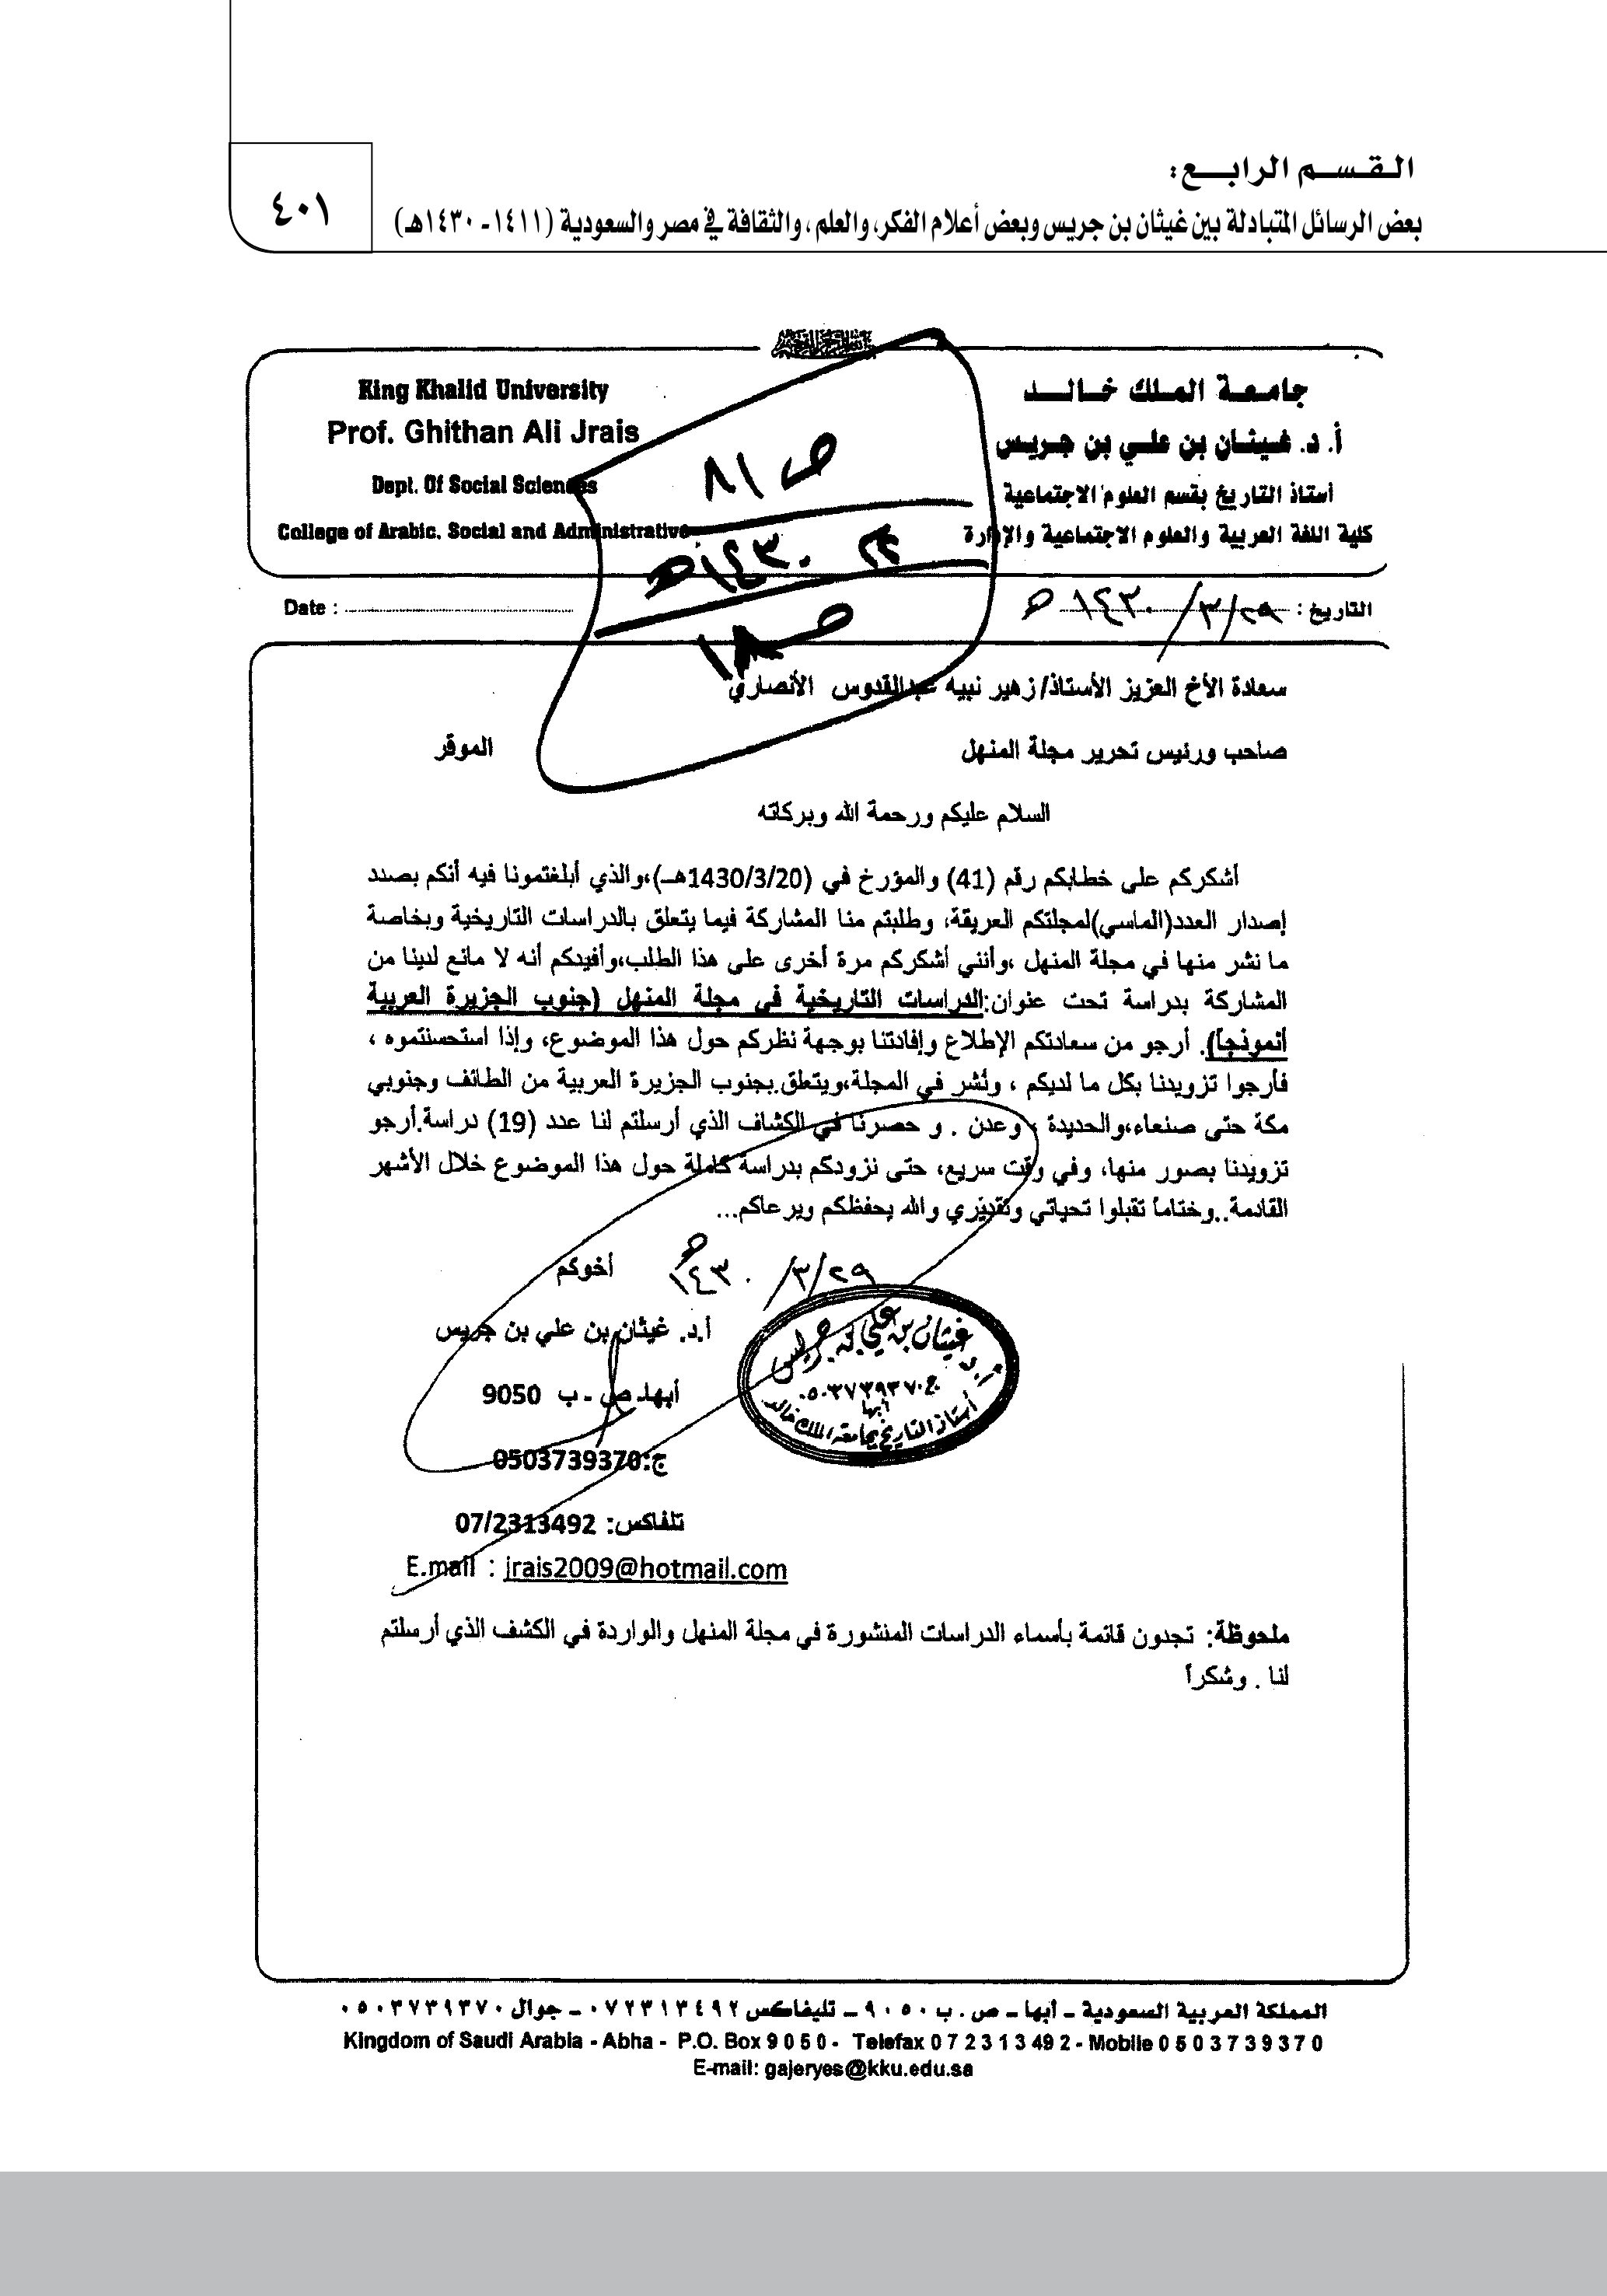 القسم الرابع:
بعض الرسائل المتبادلة بين غيثان بن جريس وبعض أعلام الفكر، والعلم، والثقافة في مصر والسعودية (١٤١١- ١٤٣٠هـ)
٤٠١
جامعة الملك خالد
أ. د. غيثان بن علي بن جريس
أستاذ التاريخ بقسم العلوم الاجتماعية
كلية اللغة العربية والعلوم الاجتماعية والإدارة
King Khalid University
Prof. Ghithan Ali Jrais
Dept. Of Social Sciences
College of Arabic. Social and Administrative
ص ٨١
١٤٣٠هـ
ص ١٨
التاريخ : ٢٩/٣/١٤٣٠هـ
Date :
سعادة الأخ العزيز الأستاذ/ زهير نبيه عبدالقدوس الأنصاري
صاحب ورئيس تحرير مجلة المنهل الموقر
السلام عليكم ورحمة الله وبركاته
أشكركم على خطابكم رقم (41) والمؤرخ في (1430/3/20هـ)،والذي أبلغتمونا فيه أنكم بصدد
إصدار العدد(الماسي)لمجلتكم العريقة، وطلبتم منا المشاركة فيما يتعلق بالدراسات التاريخية وبخاصة
ما نشر منها في مجلة المنهل ،وأنني أشكركم مرة أخرى على هذا الطلب،وأفيدكم أنه لا مانع لدينا من
المشاركة بدراسة تحت عنوان:الدراسات التاريخية في مجلة المنهل (جنوب الجزيرة العربية
أنموذجاً). أرجو من سعادتكم الإطلاع وإفادتنا بوجهة نظركم حول هذا الموضوع، وإذا استحسنتموه ،
فأرجوا تزويدنا بكل ما لديكم ، ونُشر في المجلة،ويتعلق بجنوب الجزيرة العربية من الطائف وجنوبي
مكة حتى صنعاء،والحديدة ، وعدن . و حصرنا في الكشاف الذي أرسلتم لنا عدد (19) دراسة.أرجو
تزويدنا بصور منها، وفي وقت سريع، حتى نزودكم بدراسة كاملة حول هذا الموضوع خلال الأشهر
القادمة..وختاماً تقبلوا تحياتي وتقديري والله يحفظكم ويرعاكم...
٢٩/٣/١٤٣٠هـ
أخوكم
أ.د. غيثان بن علي بن جريس
أبها- ص - ب 9050
ج:0503739370
تلفاكس: 07/2313492
E.mail : jrais2009@hotmail.com
أ.د. غيثان بن علي بن جريس
ج ٠٥٠٣٧٣٩٣٧٠
أبها
أستاذ التاريخ بجامعة الملك خالد
ملحوظة: تجدون قائمة بأسماء الدراسات المنشورة في مجلة المنهل والواردة في الكشف الذي أرسلتم
لنا . وشكراً
المملكة العربية السعودية – أبها – ص . ب ٩٠٥٠ – تليفاكس ٠٧٢٣١٣٤٩٢ – جوال ٠٥٠٣٧٣٩٣٧٠
Kingdom of Saudi Arabia - Abha - P.O. Box 9 0 5 0 - Telefax 0 7 2 3 1 3 49 2 - Mobile 0 5 0 3 7 3 9 3 7 0
E-mail: gajeryes@kku.edu.sa